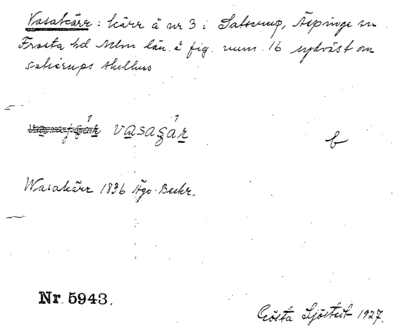 Vasakärr: kärr å nr 3 i Saltorup, Äspinge sn
Frosta hd Mlm län. å fig. num. 16 sydväst om
Saltorups skolhus
vasaȝaʀ
b
Wasakärr 1836 Ägo-Beskr.
Nr. 5943.
Gösta Sjöstedt 1927.